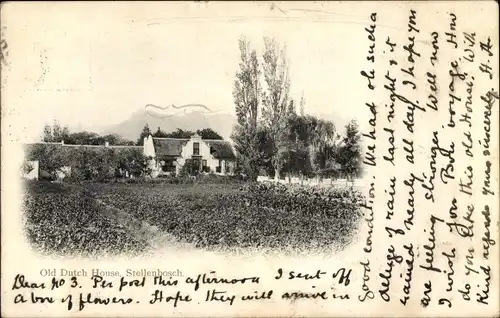 Old Dutch House, Stellenbosch.
Dear No 3. Per post this afternoon I sent off
a box of flowers. Hope they will arrive in
good condition. We had oh such a
deluge of rain last night & it
rained nearly all day. I hope you
are feeling stronger. Well now
I wish you Bon voyage. How
do you like this old House? With
Kind regards yours sincerely. H. A.